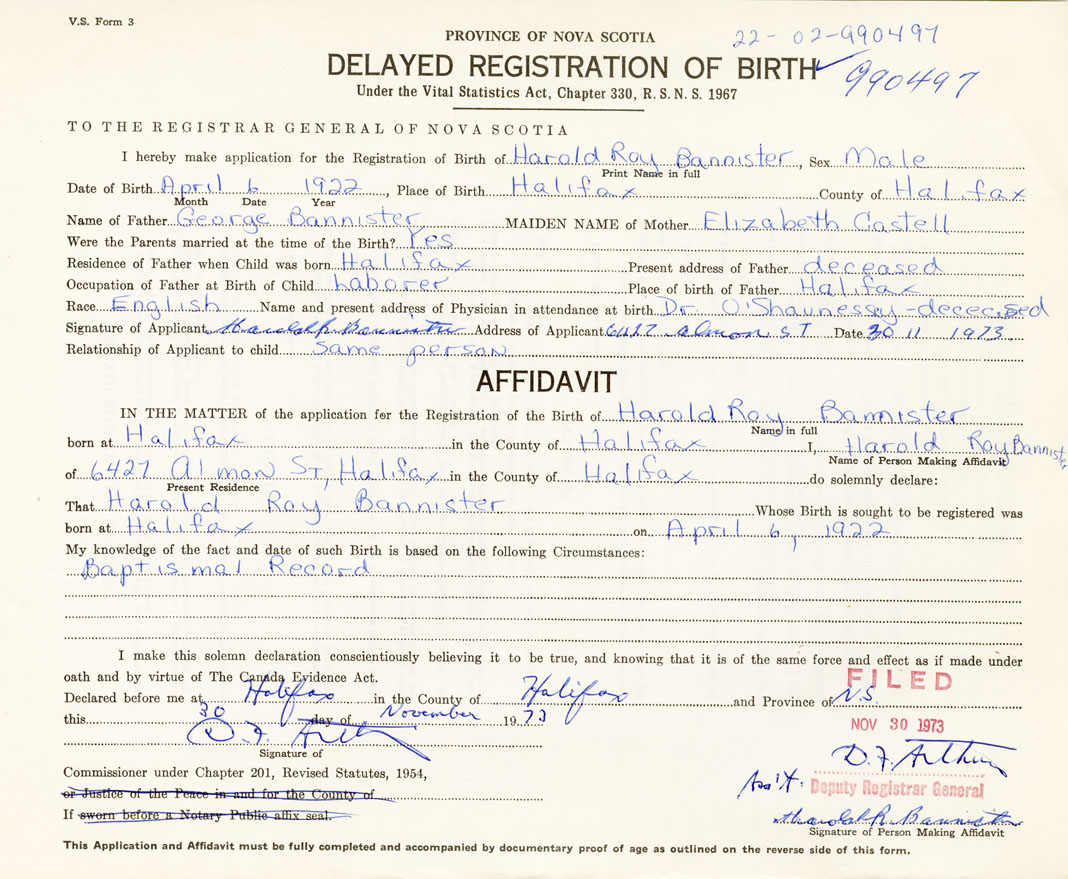 V.S. Form 3
PROVINCE OF NOVA SCOTIA
22-02-990497
DELAYED REGISTRATION OF BIRTH
990497
Under the Vital Statistics Act, Chapter 330, R.S.N.S. 1967
TO THE REGISTRAR GENERAL OF NOVA SCOTIA
I hereby make application for the Registration of Birth of Harold Roy Bannister, Sex Male
Print Name in full
Date of Birth April 6 1922, Place of Birth Halifax County of Halifax
Month Date Year
Name of Father George Bannister MAIDEN NAME of Mother Elizabeth Castell
Were the Parents married at the time of the Birth? Yes
Residence of Father when Child was born Halifax Present address of Father deceased
Occupation of Father at Birth of Child Laborer Place of birth of Father Halifax
Race English Name and present address of Physician in attendance at birth Dr. O'Shaunessey - deceased
Signature of Applicant Harold R Bannister Address of Applicant 6427 Almon ST Date 30 11 1973
Relationship of Applicant to child same person
AFFIDAVIT
IN THE MATTER of the application for the Registration of the Birth of Harold Roy Bannister
Name in full
born at Halifax in the County of Halifax I, Harold Roy Bannister
Name of Person Making Affidavit
of 6427 Almon ST, Halifax in the County of Halifax do solemnly declare:
Present Residence
That Harold Roy Bannister Whose Birth is sought to be registered was
born at Halifax on April 6, 1922
My knowledge of the fact and date of such Birth is based on the following Circumstances:
Baptismal Record
I make this solemn declaration conscientiously believing it to be true, and knowing that it is of the same force and effect as if made under
oath and by virtue of The Canada Evidence Act.
FILED
Declared before me at Halifax in the County of Halifax and Province of N.S.
this 30 day of November 1973
NOV 30 1973
D.F. Arthur
D.F. Arthur
Signature of
Commissioner under Chapter 201, Revised Statutes, 1954,
Ass't. Deputy Registrar General
or Justice of the Peace in and for the County of
If sworn before a Notary Public affix seal.
Harold R. Bannister
Signature of Person Making Affidavit
This Application and Affidavit must be fully completed and accompanied by documentary proof of age as outlined on the reverse side of this form.